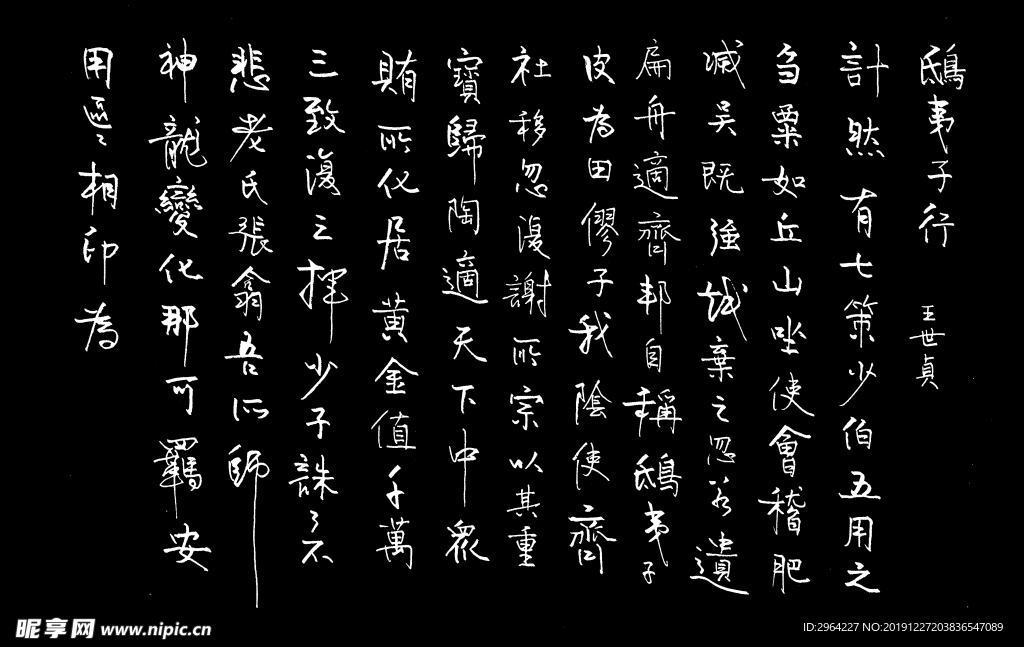 鴟夷子行 王世貞
計然有七策少伯五用之
芻粟如丘山坐使會稽肥
減吴既強越棄之忽若遺
扁舟適齊邦自稱鴟夷子
皮為田僇子我陰使齊
社移忽復謝所宗以其重
寶歸陶適天下中眾
賄所化居黄金值千萬
三致復三揮少子誅之不
悲老氏張翕吾所師
神龍變化那可羈安
用區々相印為
昵享网 www.nipic.cn
ID:2964227 NO:20191227203836547089